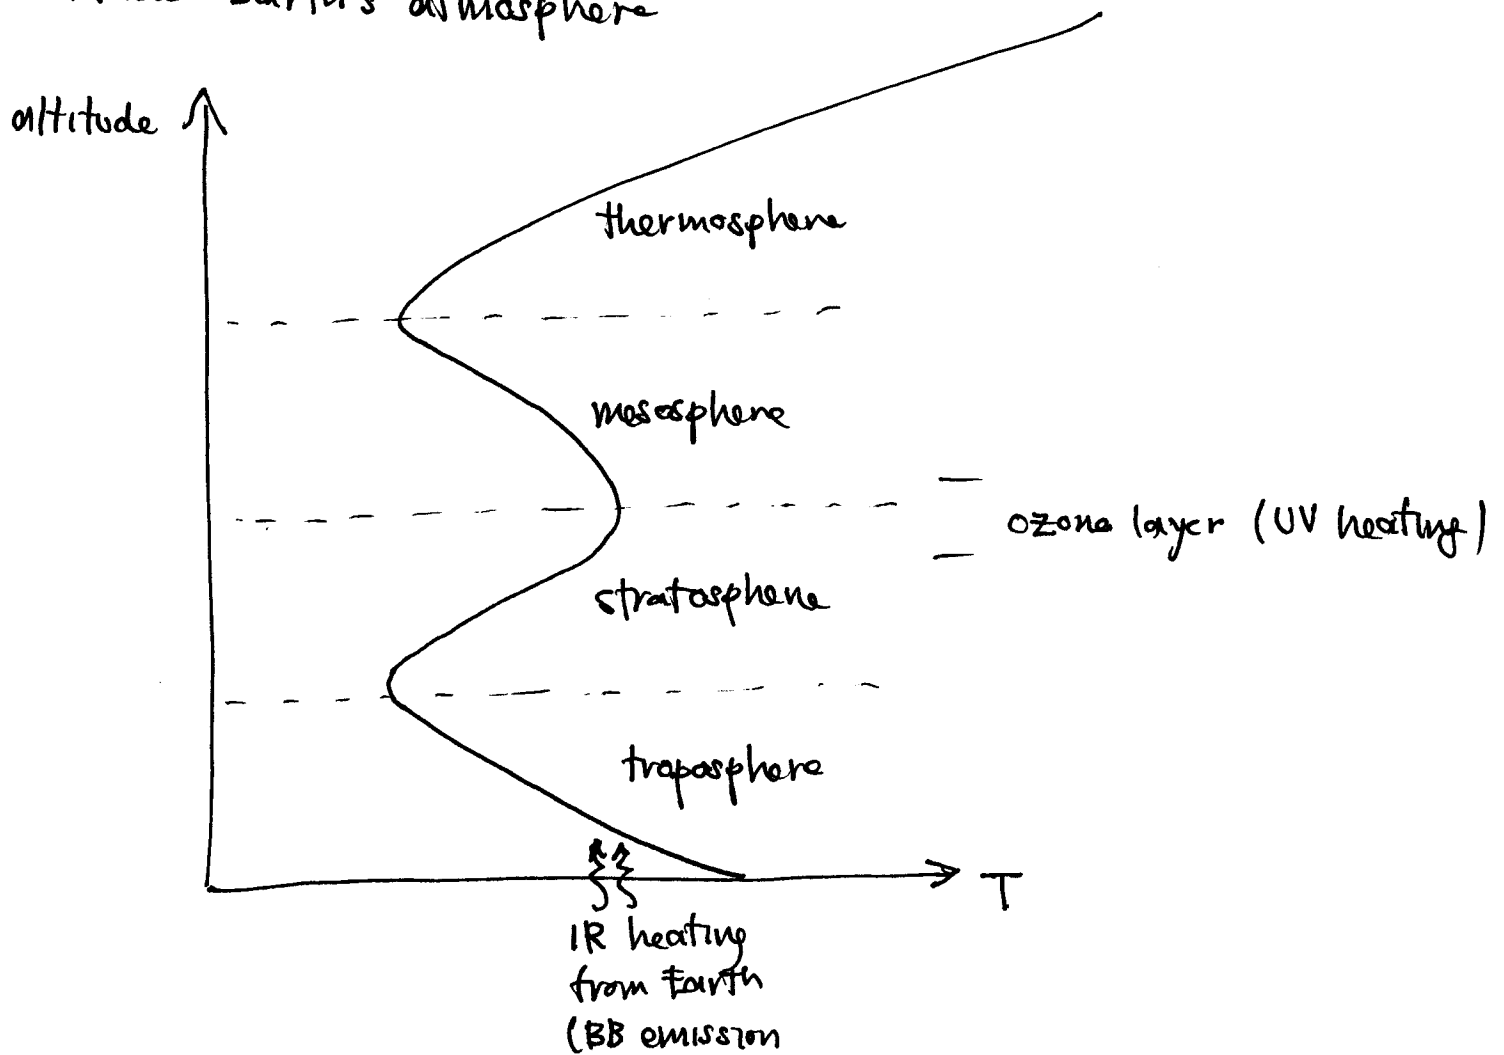 Earth's atmosphere
altitude
thermosphere
mesosphere
ozone layer (UV heating)
stratosphere
troposphere
T
IR heating
from Earth
(BB emission